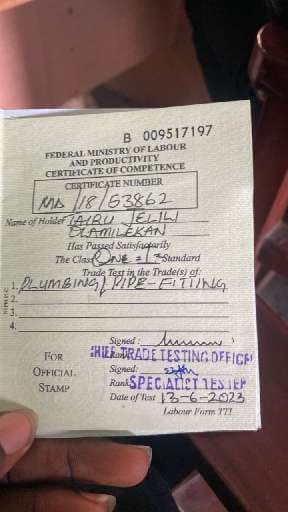 B 009517197
FEDERAL MINISTRY OF LABOUR
AND PRODUCTIVITY
CERTIFICATE OF COMPETENCE
CERTIFICATE NUMBER
MD/18/53862
Name of Holder TAIRU JELILI
OLAMILEKAN
Has Passed Satisfactorily
The Class ONE = 1 Standard
Trade Test in the Trade(s) of:
1. PLUMBING/PIPE-FITTING
2.
3.
4.
Signed:
FOR
OFFICIAL
STAMP
Rank
CHIEF TRADE TESTING OFFICER
Signed:
Rank SPECIALIST TESTER
Date of Test 13-6-2023
Labour Form TT1